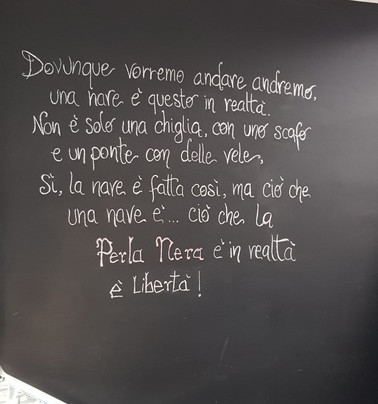 Dovunque vorremo andare andremo,
una nave è questo in realtà.
Non è solo una chiglia, con uno scafo
e un ponte con delle vele,
Sì, la nave è fatta così, ma ciò che
una nave è... ciò che la
Perla Nera è in realtà
è Libertà!